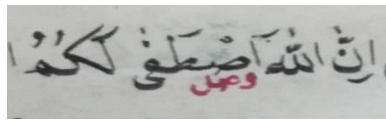 اِنَّ اللّٰهَ اَصْطَفٰى لَكُمُ ا
وصل